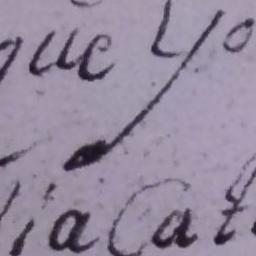 que yo
ia Cat